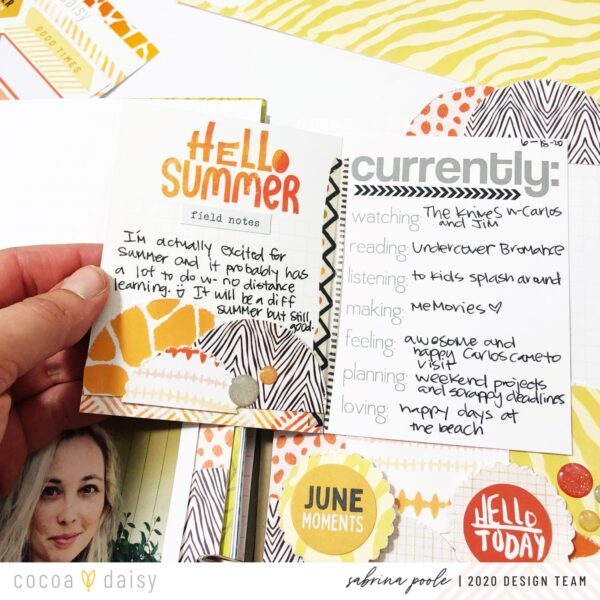 GOOD TIMES
HELLO
SUMMER
field notes
I'm actually excited for
summer and it probably has
a lot to do w- no distance
learning. It will be a diff
summer but still
good.
6-18-20
currently:
watching: The Knives w-Carlos
and Jim
reading: Undercover Bromance
listening: to kids splash around
making: meMories
feeling: awesome and
happy Carlos came to
visit
planning: weekend projects
and scrappy deadlines
loving: happy days at
the beach
JUNE
MOMENTS
HELLO
TODAY
cocoa daisy
sabrina poole | 2020 DESIGN TEAM